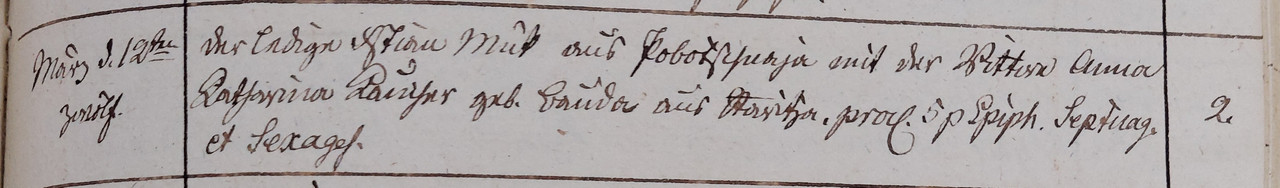 März d. 12ten
zwölf.
der ledige Xstian Muth aus Pobotschnaja mit der Wittwe Anna
Katharina Kaucher geb. Bauda aus Staritza. procl. 5 p Epiph. Septuag.
et Sexages.
2.